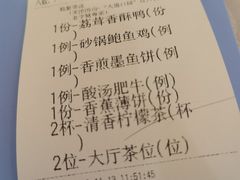 1份-荔茸香酥鸭(份)
1例-砂锅鲍鱼鸡(例
1例-香煎墨鱼饼(例
)
1例-酸汤肥牛(例)
1份-香蕉薄饼(份)
2杯-清香柠檬茶(杯
)
2位-大厅茶位(位)
13:51:45